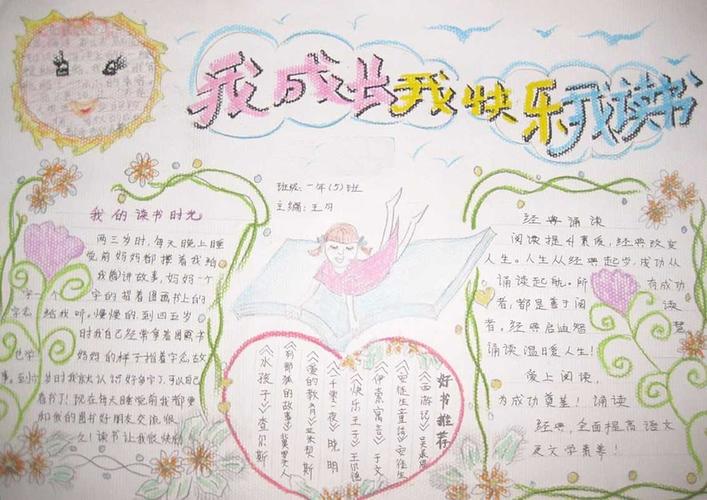 我成长我快乐我读书
班级:一年(5)班
主编:王习
我的读书时光
两三岁时,每天晚上睡
觉前妈妈都搂着我给
我翻讲故事,妈妈一个
字一个字的指着图画书上的
字念给我听。慢慢的,到四五岁
时我自己经常拿着图
也学妈妈的样子指着字念故
事。到
岁时我就认识好多字了,可以自己
看书了!现在每天睡觉前我都要
和我的图书好朋友交流很
久!读书让我很快乐
好书推荐
《西游记》吴承恩
《安徒生童话》安徒生
《伊索寓言》于文
《快乐王子》王尔德
《一千零一夜》晓明
《爱的教育》
《列那狐的故事》
《水孩子》查尔斯
经典诵读
阅读提升素质,经典改变
人生。人生从经典起步,成功从
诵读起航。所有成功
者,都是善于阅读
者。经典启迪智慧
诵读温暖人生!
爱上阅读,
为成功奠基!诵读
经典,全面提高语文
及文学素养!